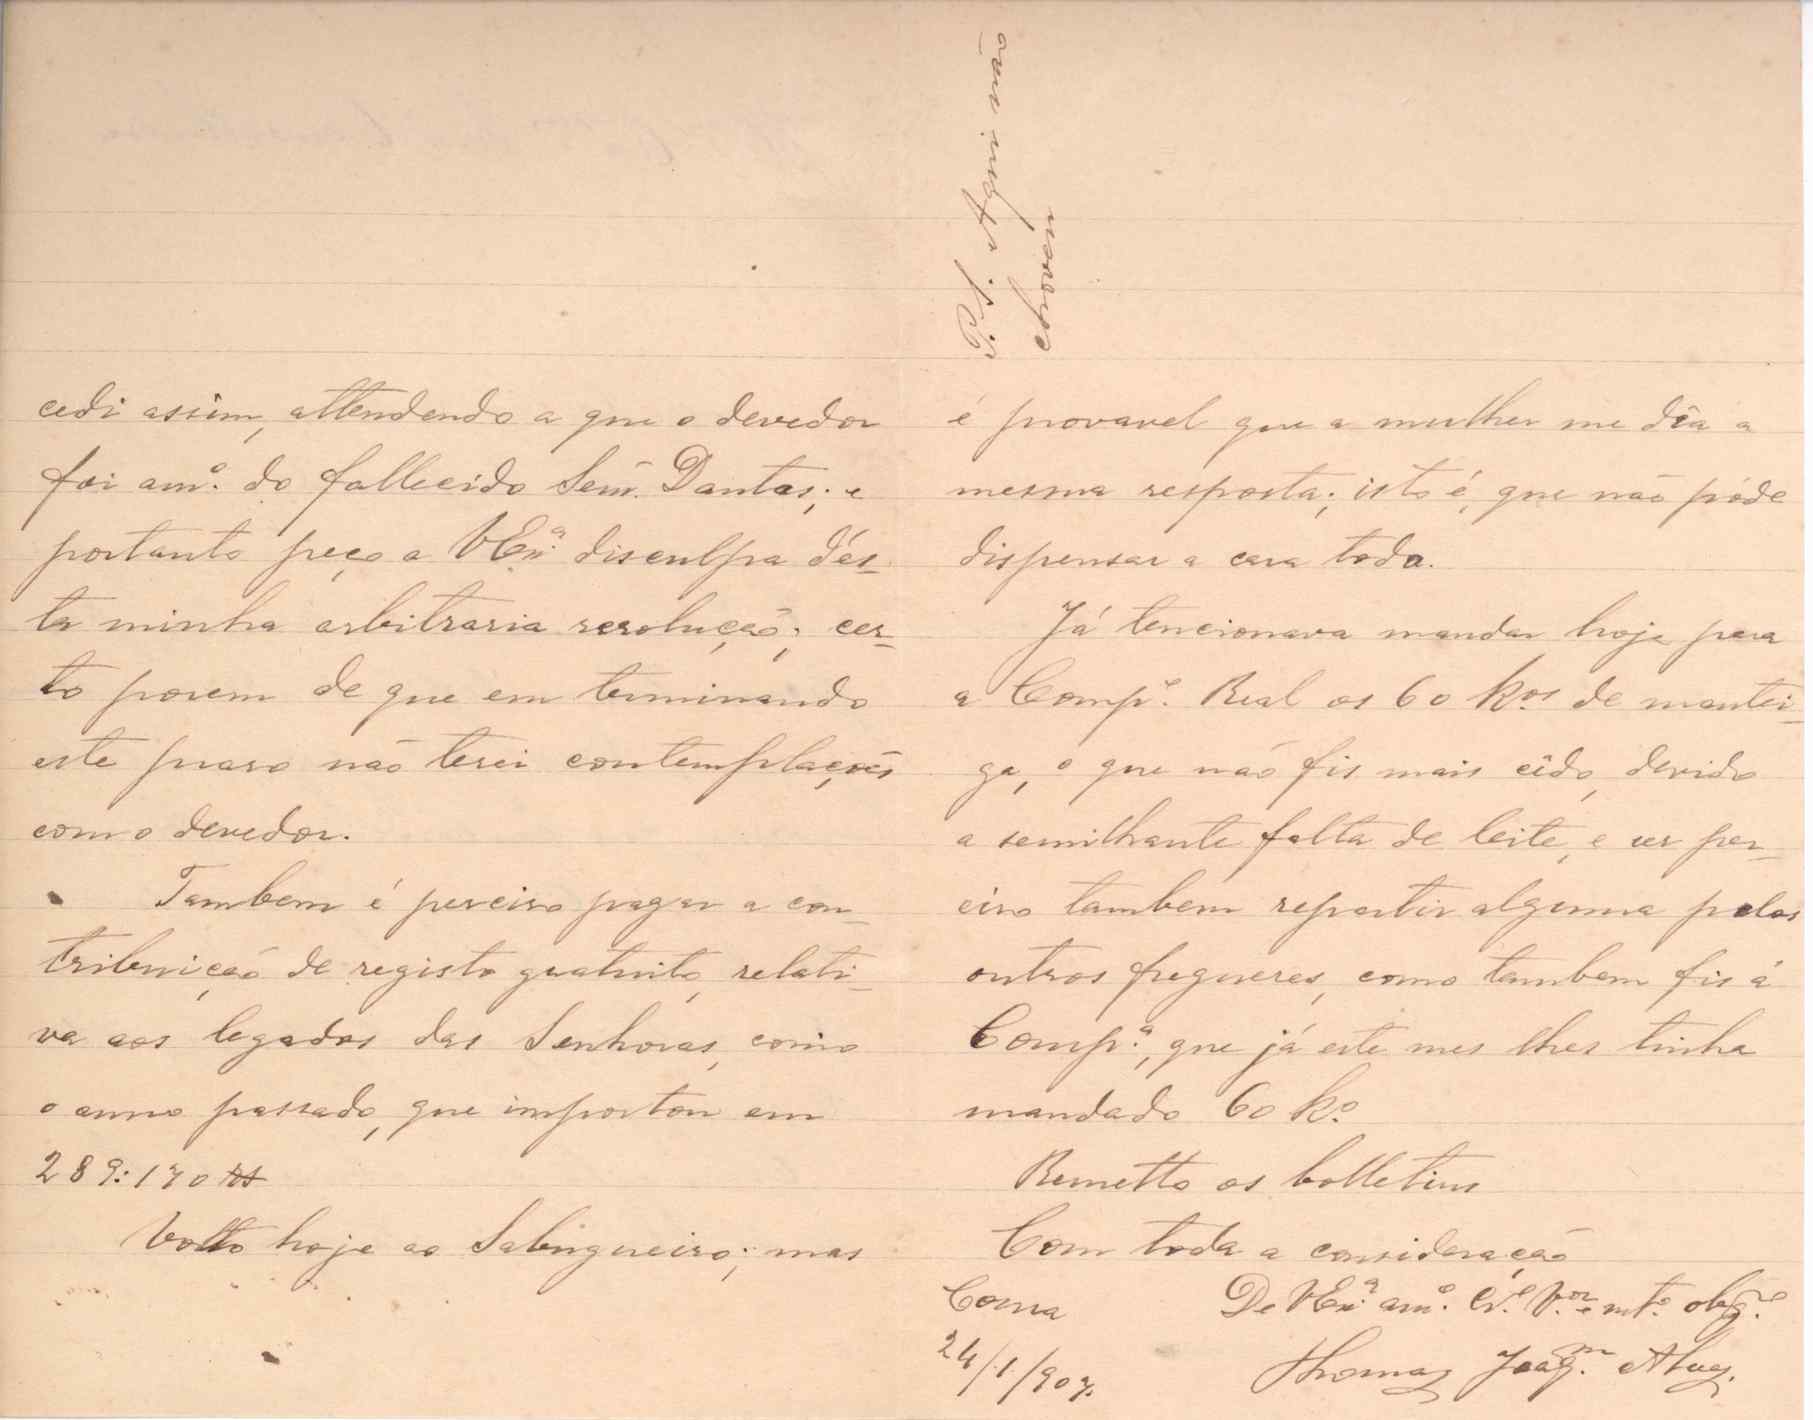 cedi assim, attendendo a que o devedor
foi am.º do fallecido Senr. Dantas; e
portanto peço a VEx.ª disculpa dés-
ta minha arbitraria resolução; cer-
to porem de que em terminando
este praso não terei contemplações
com o devedor.
Tambem é perciso pagar a con-
tribuição de registo gratuito, relati-
va aos legados das Senhoras, como
o anno passado, que importou em
289:170 rs
Volto hoje ao Sabugueiro; mas
é provavel que a mulher me dîa a
mesma resposta; isto é, que não póde
dispensar a casa toda.
Já tencionava mandar, hoje para
a Comp.ª Real os 60 k.os de mantei-
ga, o que não fis mais cêdo, devido
a semilhante falta de leite, e ser per-
ciso tambem repartir alguma pelos
outros freguezes, como tambem fis á
Comp.ª, que já este mes lhes tinha
mandado 60 k.º
Remetto os bolletins
Com toda a consideração
De VEx.ª am.º Cr.º V.or e mt.º obg.º
Thomaz Joaq.m Alves.
Coma
24/1/907.
P.S. Aqui não
chovem